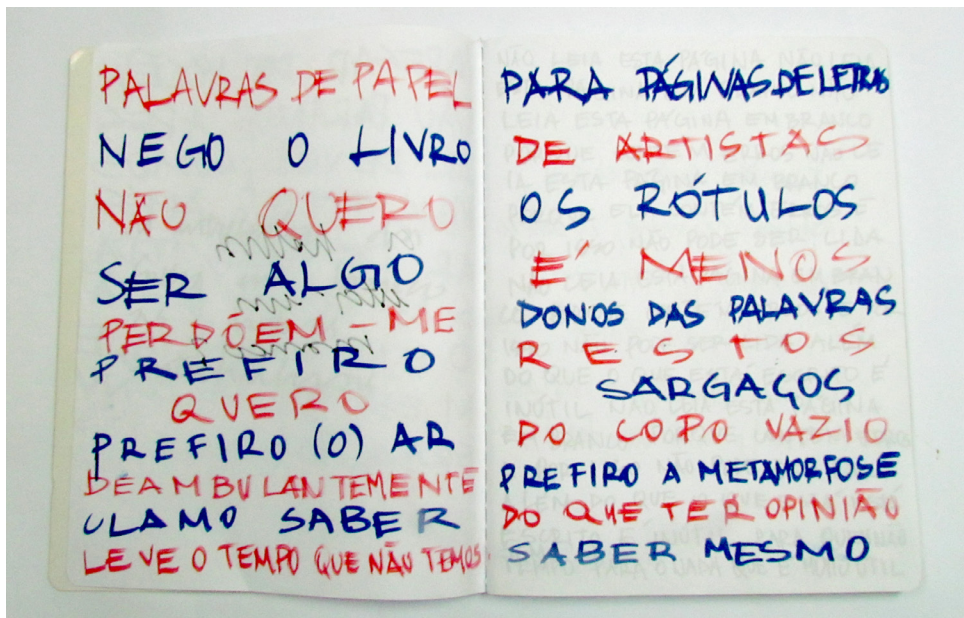 PALAVRAS DE PAPEL
NEGO O LIVRO
NÃO QUERO
SER ALGO
PERDÓEM-ME
PREFIRO
QUERO
PREFIRO (O) AR
DEAMBULANTEMENTE
CLAMO SABER
LEVE O TEMPO QUE NÃO TEMOS
PARA PÁGINAS DE LETRAS
DE ARTISTAS
OS RÓTULOS
É MENOS
DONOS DAS PALAVRAS
RESTOS
SARGAÇOS
DO COPO VAZIO
PREFIRO A METAMORFOSE
DO QUE TER OPINIÃO
SABER MESMO